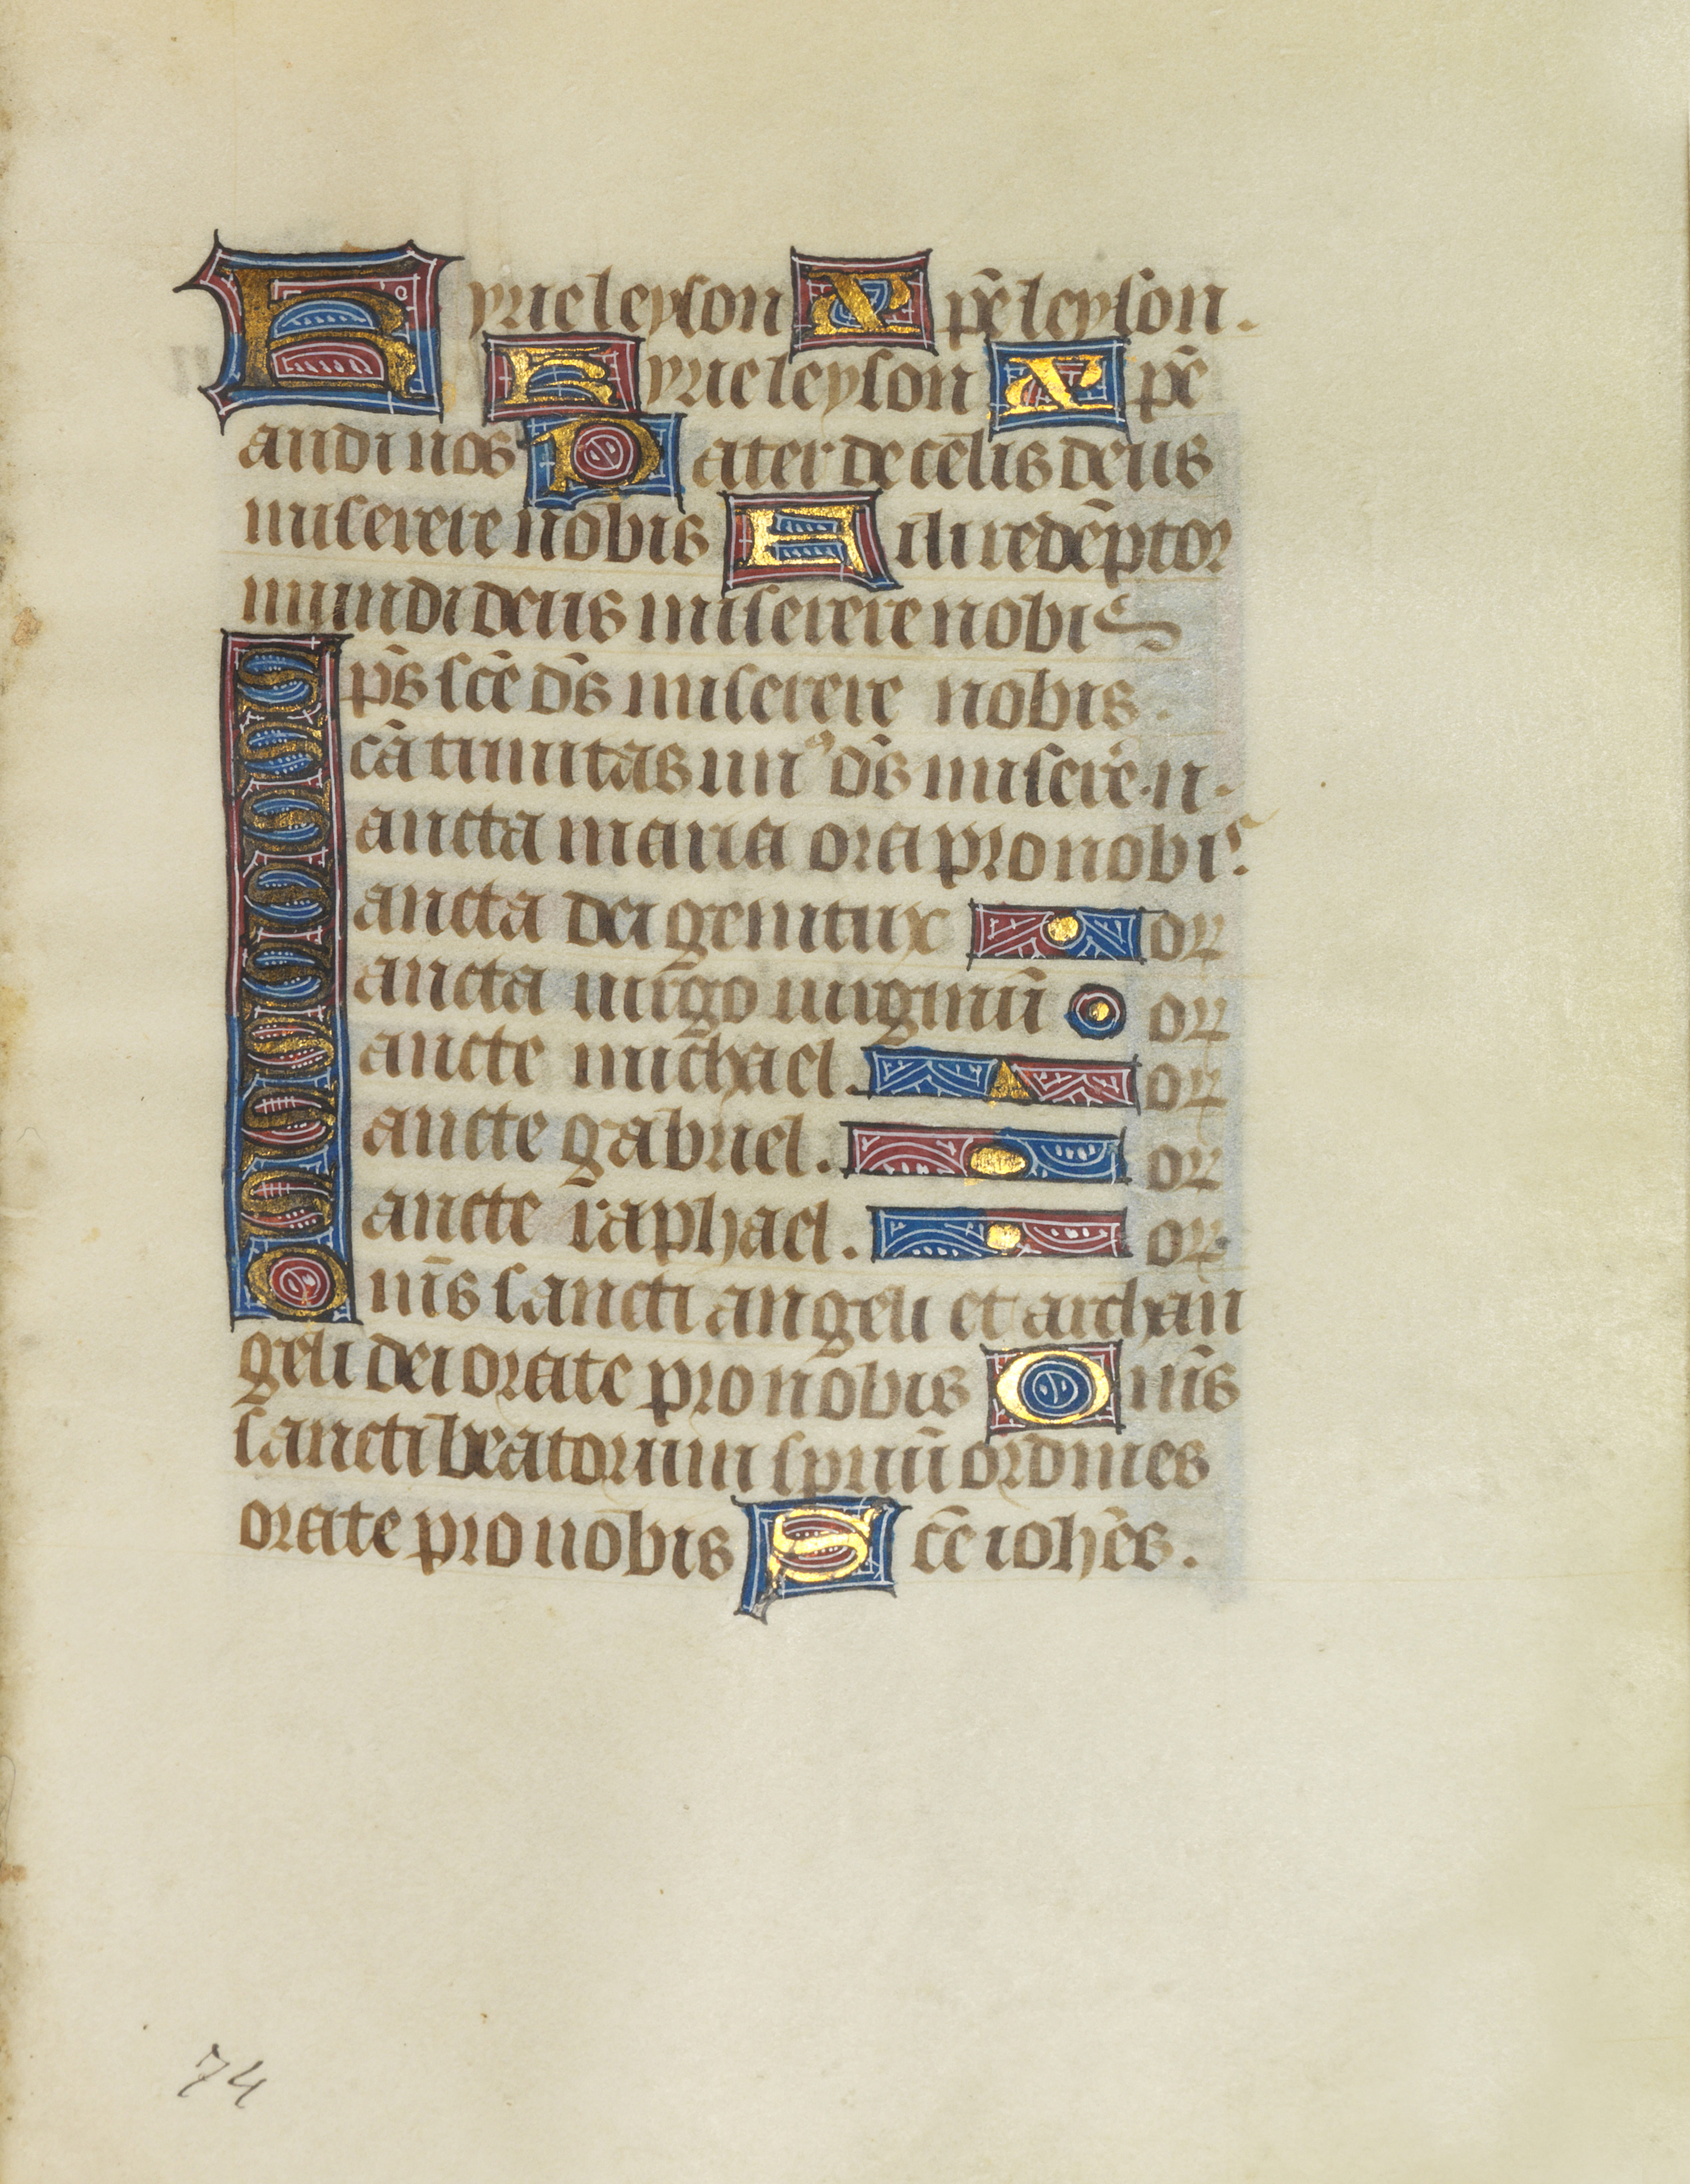 Kyrieleyson Xp̄eleyson.
Kyrieleyson Xp̄e
audi nos Pater de celis deus
miserere nobis Fili redēptor
mundi deus miserere nobis
Sp̄s sc̄e d̄s miserere nobis.
Scā trinitas unꝰ d̄s miserē. n.
Sancta maria ora pro nobis.
Sancta dei genitrix or
Sancta uirgo uirginū or
Sancte michael. or
Sancte gabriel. or
Sancte raphael. or
Om̄s sancti angeli et archan
geli dei orate pro nobis Om̄s
sancti beatorum spirituū ordines
orate pro nobis Sc̄e ioh̄es.
74